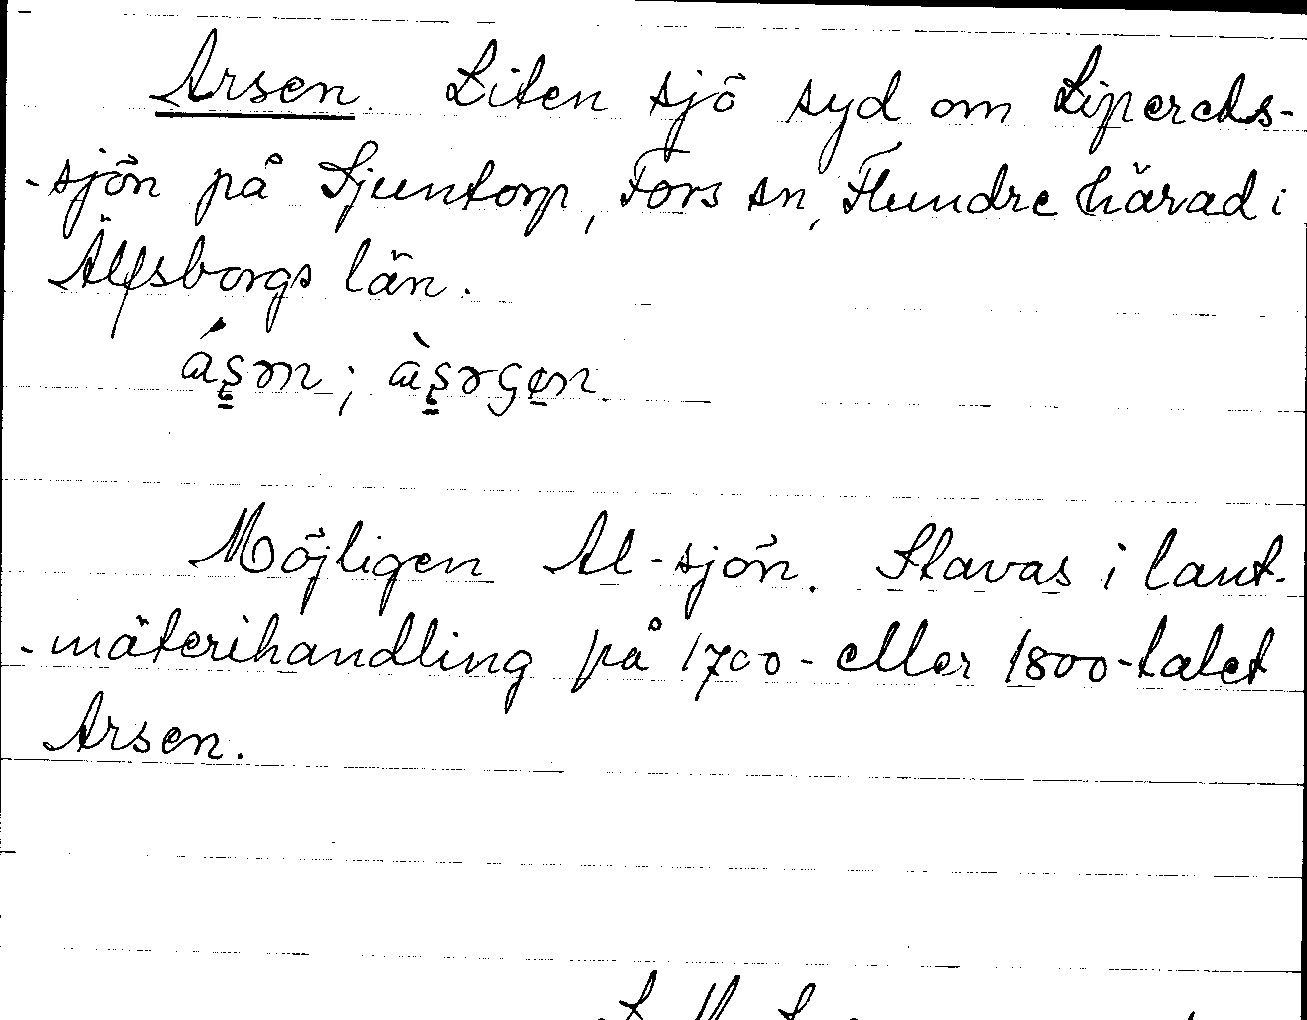 Arsen. Liten sjö syd om Lipereds-
-sjön på Sjuntorp, Fors sn, Flundre härad i
Älfsborgs län.
Möjligen Al-sjön. Stavas i lant-
-mäterihandling på 1700- eller 1800-talet
Arsen.